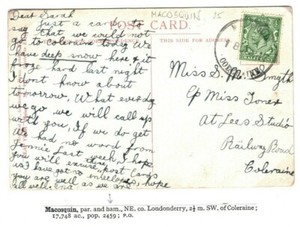 MACOSQUIN. 15
POST CARD.
Dear Sarah
Just a card to
say that we could not
go to Coleraine today. We
have deep snow here & it
froze hard last night
I don't know about
tomorrow. What ever day
we go we will call up
with you. If we do get
We had no word from
Jennie last week. I hope
you will excuse post card
as I have got no envelopes, hope
you are well as we are
all well
Miss S. Smyth
c/o Miss Toner
At Lees Studio
Railway Road
Coleraine
Macosquin, par. and ham., NE. co. Londonderry, 2½ m. SW. of Coleraine;
17,748 ac., pop. 2459; P.O.